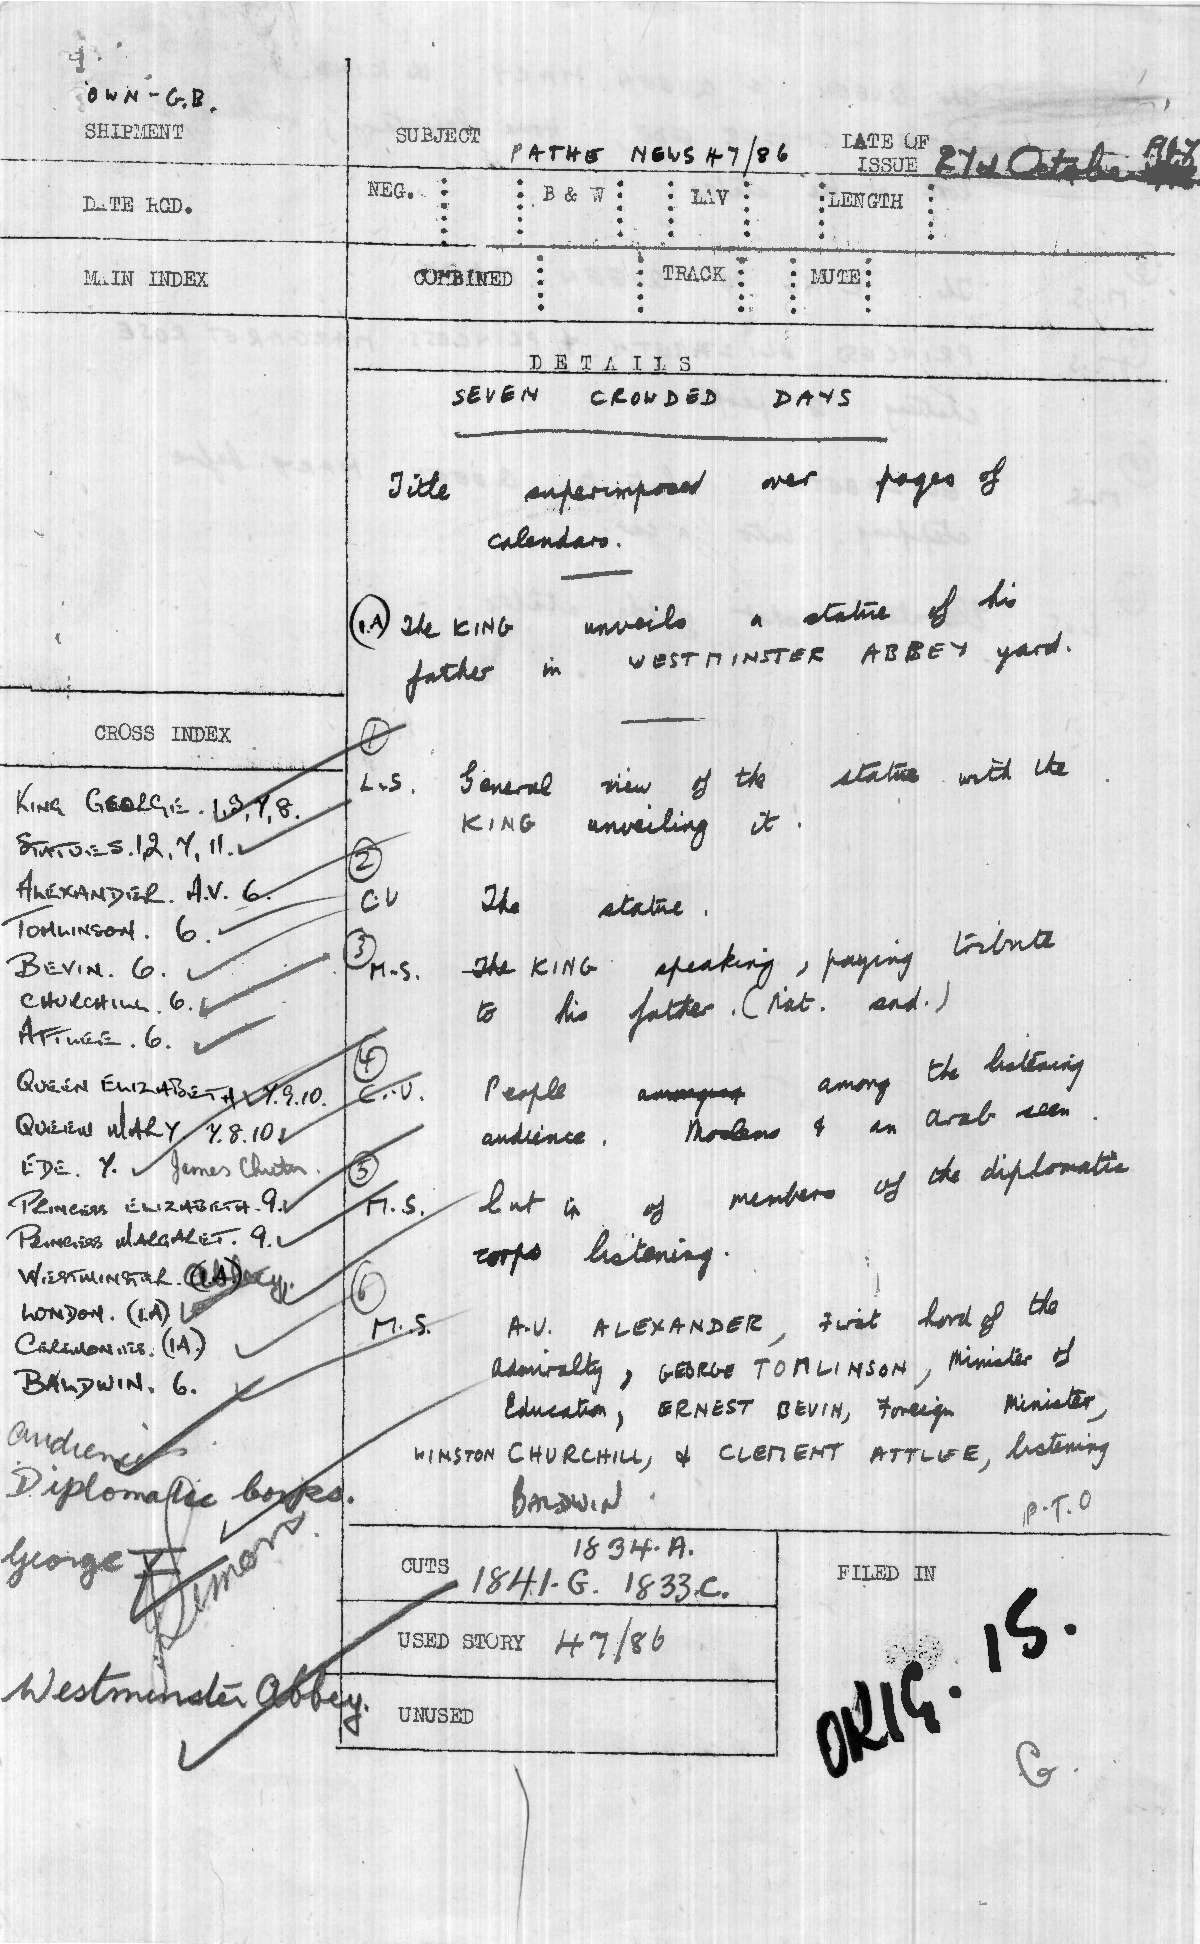 OWN - G.B.
SHIPMENT
SUBJECT PATHE NEWS 47/86
DATE OF ISSUE October
DATE RCD.
NEG.
B & W
LAV
LENGTH
MAIN INDEX
COMBINED
TRACK
MUTE
DETAILS
SEVEN CROWDED DAYS
Title superimposed over pages of
calendars.
1.A The KING unveils a statue of his
father in WESTMINSTER ABBEY yard.
CROSS INDEX
KING GEORGE. 1,3,7,8.
STATUES. 1,2,7,11.
ALEXANDER. A.V. 6.
TOMLINSON. 6.
BEVIN. 6.
CHURCHILL. 6.
ATTLEE. 6.
QUEEN ELIZABETH 7.9.10.
QUEEN MARY 7.8.10
EDE. 7. James Chuter.
PRINCESS ELIZABETH. 9.
PRINCESS MARGARET. 9.
WESTMINSTER. (1.A)
LONDON. (1.A)
CEREMONIES. (1A.)
BALDWIN. 6.
Audiences
Diplomatic Corps.
George V
Westminster Abbey.
1
L.S. General view of the statue with the
KING unveiling it.
2
C.U The statue.
3
M.S. The KING speaking, paying tribute
to his father. (Nat. snd.)
4
C.U. People among the listening
audience. Moslems & an Arab seen.
5
M.S. Cut in of members of the diplomatic
corps listening.
6
M.S. A.V. ALEXANDER, First Lord of the
Admiralty, GEORGE TOMLINSON, Minister of
Education, ERNEST BEVIN, Foreign Minister,
WINSTON CHURCHILL, & CLEMENT ATTLEE, listening
BALDWIN.
P.T.O
CUTS 1834.A.
1841.G. 1833.C.
USED STORY 47/86
UNUSED
FILED IN
ORIG. 15.
G.